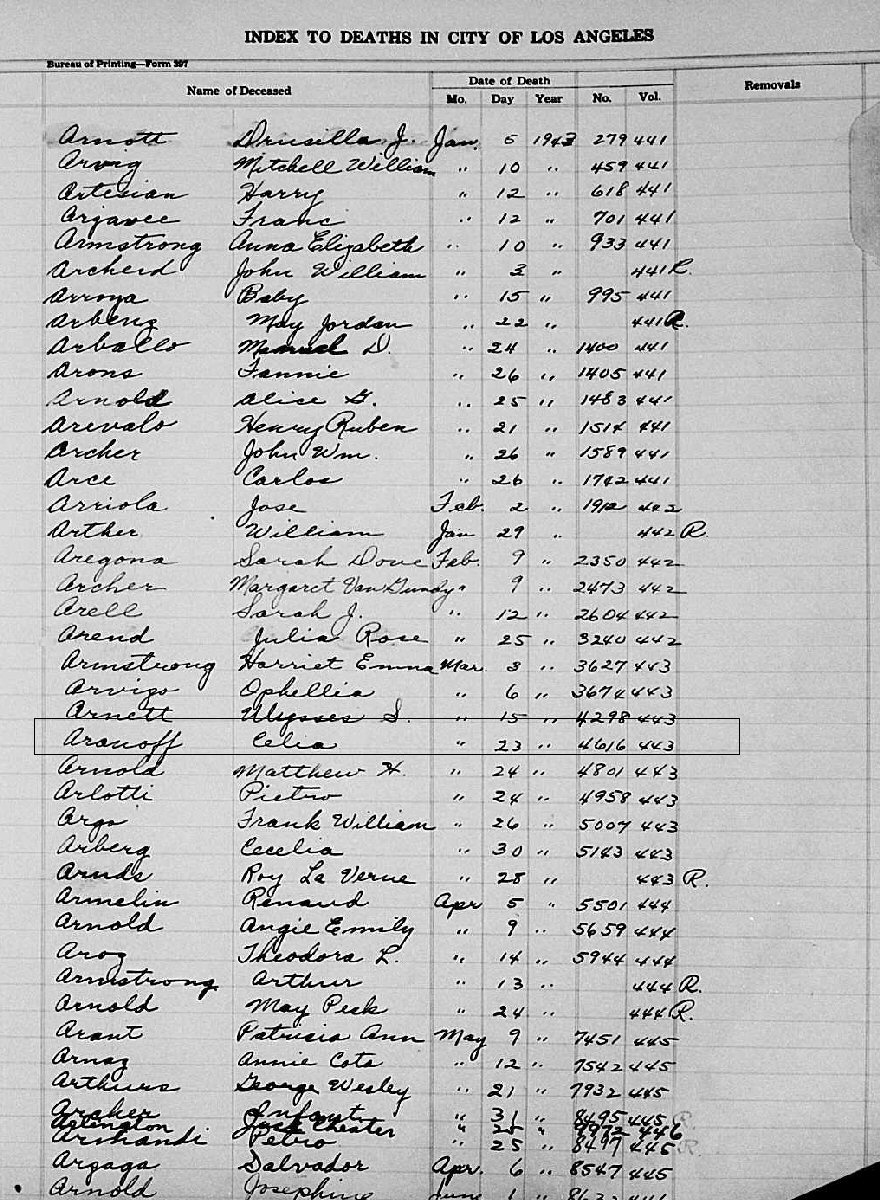 INDEX TO DEATHS IN CITY OF LOS ANGELES
Bureau of Printing—Form 397
Name of Deceased Date of Death Removals
Mo. Day Year No. Vol.
Arnott Drusilla J. Jan. 5 1943 279 441
Arvig Mitchell William " 10 " 459 441
Artesian Harry " 12 " 618 441
Argavee Franc " 12 " 701 441
Armstrong Anna Elizabeth " 10 " 933 441
Archerd John William " 3 " 441 R.
Arroya Baby " 15 " 995 441
Arbeng May Jordan " 22 " 441 R.
Arballo Manuel D. " 24 " 1400 441
Arons Fannie " 26 " 1405 441
Arnold Alice G. " 25 " 1483 441
Arevalo Henry Ruben " 21 " 1514 441
Archer John Wm. " 26 " 1589 441
Arce Carlos " 26 " 1742 441
Arriola Jose Feb. 2 " 1912 442
Arther William Jan 29 " 442 R.
Aregona Sarah Dove Feb. 9 " 2350 442
Archer Margaret VanGundy " 9 " 2473 442
Arell Sarah J. " 12 " 2604 442
Arend Julia Rose " 25 " 3240 442
Armstrong Harriet Emma Mar. 3 " 3627 443
Arvigo Ophellia " 6 " 3674 443
Arnett Ulysses S. " 15 " 4298 443
Aranoff Celia " 23 " 4616 443
Arnold Matthew H. " 24 " 4801 443
Arlotti Pietro " 24 " 4958 443
Argo Frank William " 26 " 5007 443
Arberg Cecelia " 30 " 5143 443
Arnds Roy La Verne " 28 " 443 R.
Armelin Renaud Apr 5 " 5501 444
Arnold Angie Emily " 9 " 5659 444
Aroz Theodora L. " 14 " 5944 444
Armstrong Arthur " 13 " 444 R.
Arnold May Peck " 24 " 444 R.
Arant Patricia Ann May 9 " 7451 445
Arnaz Annie Cota " 12 " 7542 445
Arthurs George Wesley " 21 " 7932 445
Archer Infant " 31 " 8495 445 R.
Arlington Jack Chester " 25 " 446
Armandi Petro " 25 " 8497 445 R.
Argaga Salvador Apr. 6 " 8547 445
Arnold Josephine June 1 "